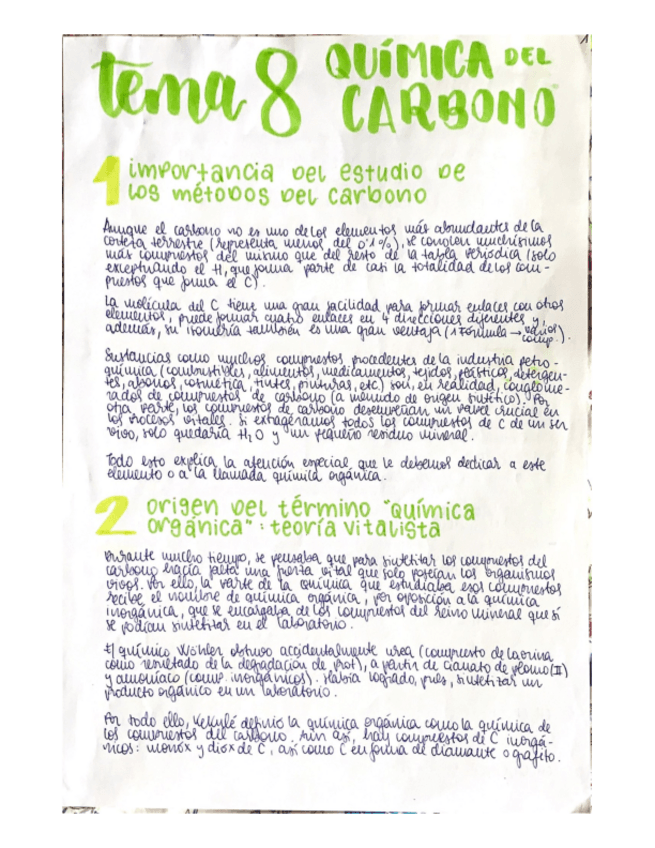 tema 8 QUÍMICA DEL
CARBONO
1 importancia del estudio de
los métodos del carbono
Aunque el carbono no es uno de los elementos más abundantes de la
corteza terrestre (representa menos del 0'1%), se conocen muchísimos
más compuestos del mismo que del resto de la tabla periódica (solo
exceptuando el H, que forma parte de casi la totalidad de los com-
puestos que forma el C).
La molécula del C tiene una gran facilidad para formar enlaces con otros
elementos, puede formar cuatro enlaces en 4 direcciones diferentes y,
además, su isomería también es una gran ventaja (1 fórmula → varios
comp.).
Sustancias como muchos compuestos procedentes de la industria petro-
química (combustibles, alimentos, medicamentos, tejidos, plásticos, detergen-
tes, abonos, cosmética, tintes, pinturas, etc) son, en realidad, conglome-
rados de compuestos de carbono (a menudo de origen sintético). Por
otra parte, los compuestos de carbono desempeñan un papel crucial en
los procesos vitales. Si extragéramos todos los compuestos de C de un ser
vivo, solo quedaría H2O y un pequeño residuo mineral.
Todo esto explica la atención especial que le debemos dedicar a este
elemento o a la llamada química orgánica.
2 origen del término "química
orgánica": teoría vitalista
Durante mucho tiempo, se pensaba que para sintetizar los compuestos del
carbono hacía falta una fuerza vital que solo poseían los organismos
vivos. Por ello, la parte de la química que estudiaba esos compuestos
recibe el nombre de química orgánica, por oposición a la química
inorgánica, que se encargaba de los compuestos del reino mineral que sí
se podían sintetizar en el laboratorio.
El químico Wöhler obtuvo accidentalmente urea (compuesto de la orina
como resultado de la degradación de prot), a partir de cianato de plomo (II)
y amoníaco (comp. inorgánicos). Había logrado, pues, sintetizar un
producto orgánico en un laboratorio.
Por todo ello, Kekulé definió la química orgánica como la química de
los compuestos del carbono. Aun así, hay compuestos de C inorgá-
nicos: monóx y dióx de C, así como C en forma de diamante o grafito.